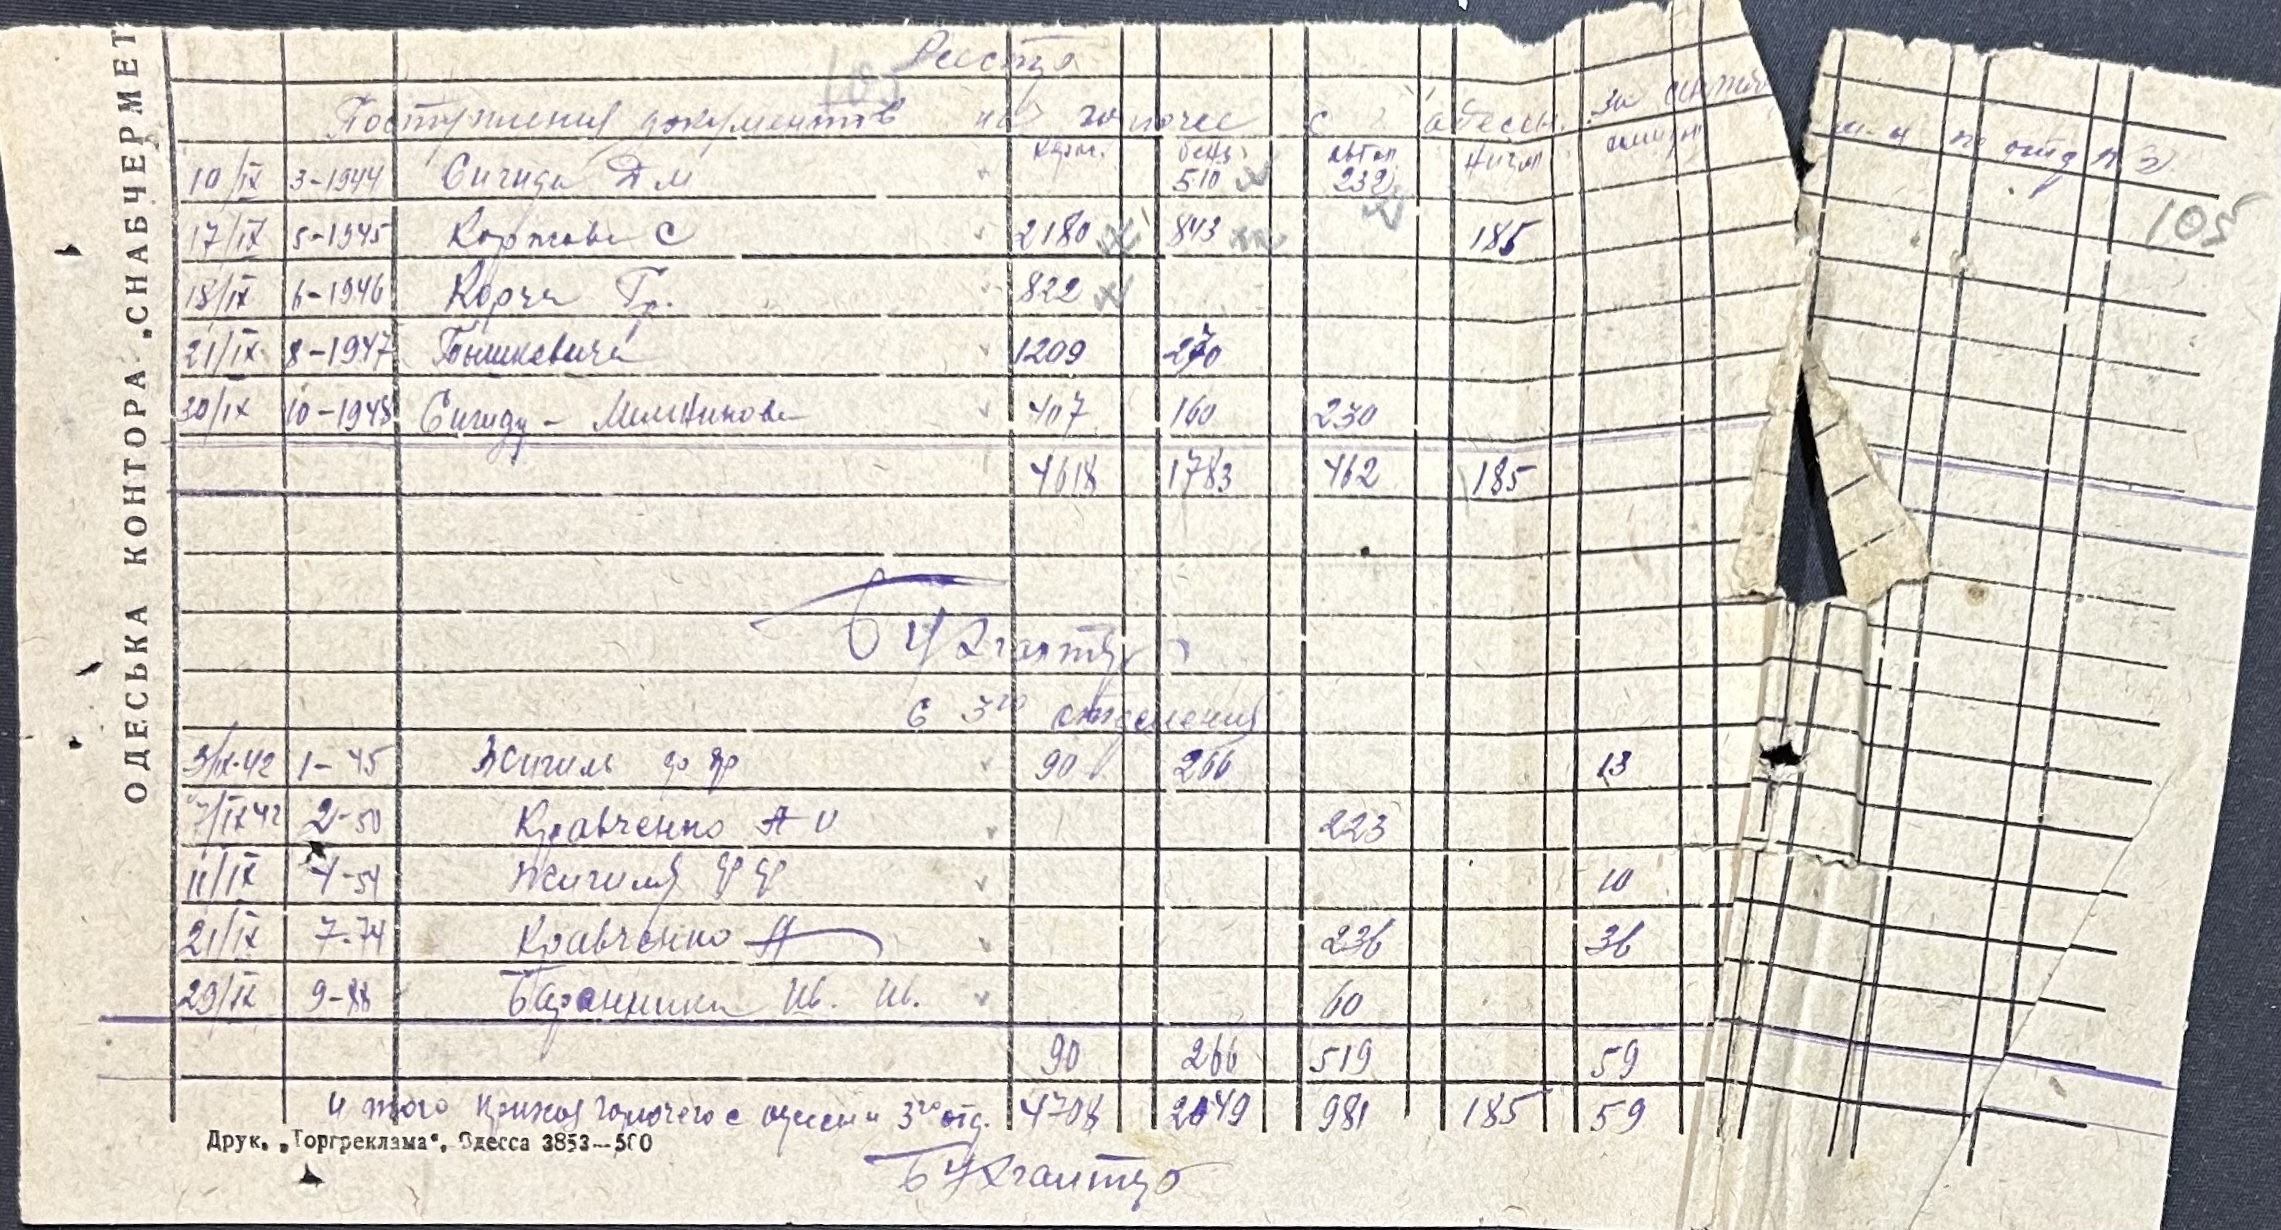 ОДЕСЬКА КОНТОРА „СНАБЧЕРМЕТ
Реестр
105
Поступления документов на горючее с Одессы за м-ц по отд N 3
105
керос. бенз. автол нигрол
10/IX 3-1944 Сигида Д М 510 232
17/IX 5-1945 С 2180 843 185
18/IX 6-1946 Корча Гр. 822
21/IX 8-1947 1209 270
30/IX 10-1948 Сигиду - 407 160 230
4618 1783 462 185
Бухгалтер
С 3го отделения
3/IX-42 1-45 Жигиль 90 266 13
7/IX 42 2-50 Кравченко А И 223
11/IX 4-54 Жигиля 10
21/IX 7-74 Кравченко А 236 36
29/IX 9-88 Ив. Ив. 60
90 266 519 59
итого приход горючего с Одессы и 3го отд. 4708 2049 981 185 59
Друк. „Торгреклама“, Одесса 3853—500
Бухгалтер